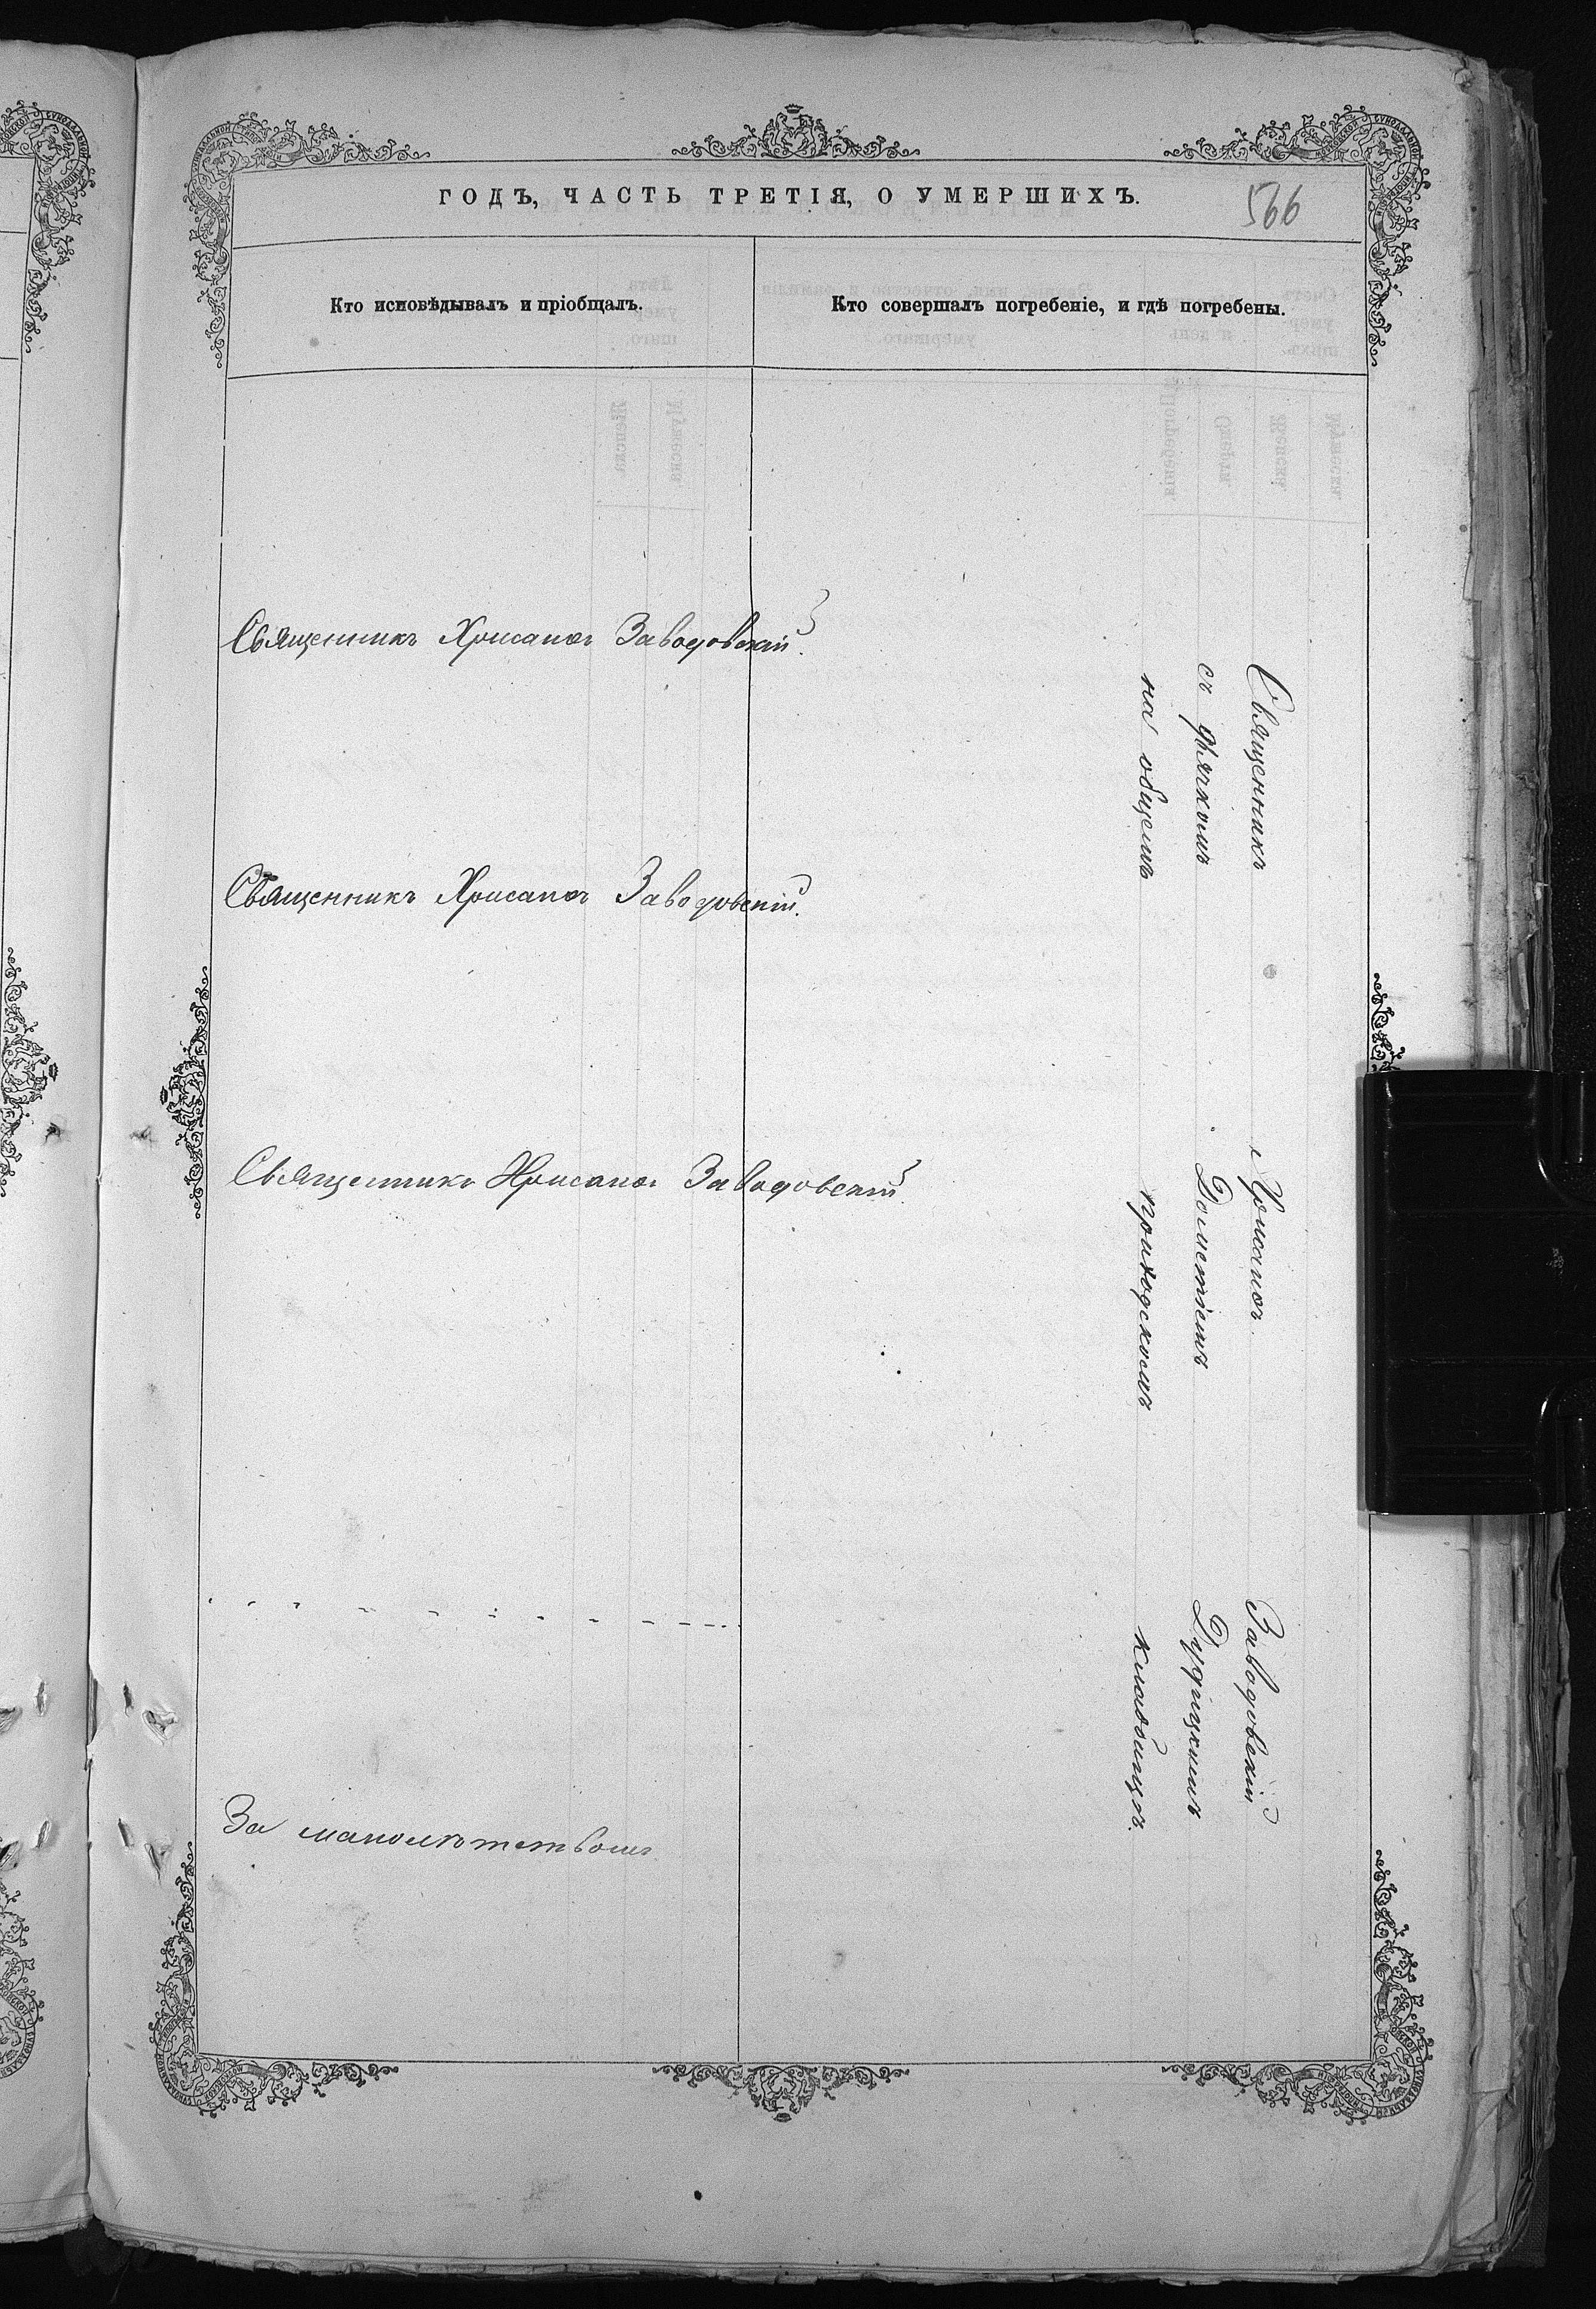 ГОДЪ, ЧАСТЬ ТРЕТІЯ, О УМЕРШИХЪ.
566
Кто исповѣдывалъ и пріобщалъ.
Кто совершалъ погребеніе, и гдѣ погребены.
Священникъ Хрисанѳъ Заводовскій.
Священникъ Хрисанѳъ Заводовскій.
Священникъ Хрисанѳъ Заводовскій.
За малолѣтствомъ
Священникъ Хрисанѳъ Заводовскій
съ дьячкомъ Дометіемъ Дудицкимъ
на общемъ приходскомъ кладбищѣ.